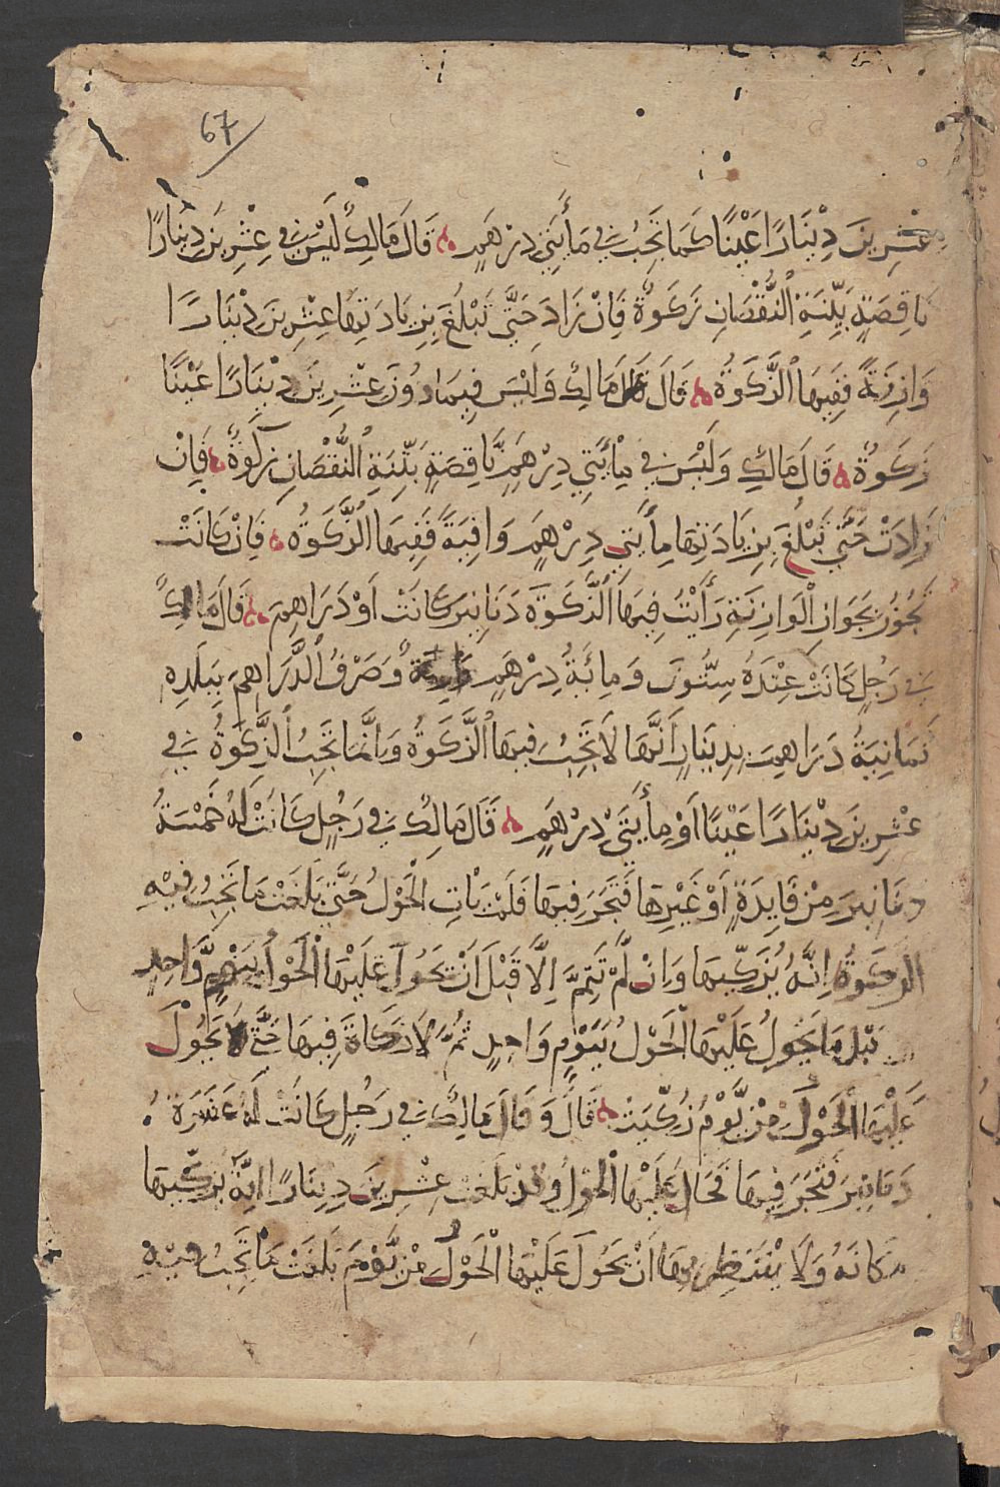 67
عِشْرِينَ دِيْنَارًا عَيْنًا كَمَا تَجِبُ فِي مَأَتَيْ دِرْهَمٍ قَالَ مَالِكٌ لَيْسَ فِي عِشْرِينَ دِينَارًا
نَاقِصَةٍ بَيِّنَةِ النُّقْصَانِ زَكَوةٌ فَإِنْ زَادَ حَتَّى تَبْلُغَ بِزِيَادَتِهَا عِشْرِينَ دِيْنَارًا
وَازِنَةً فَفِيهَا الزَّكَوةُ قَالَ مَالِكٌ وَلَيْسَ فِيمَا دُونَ عِشْرِينَ دِيْنَارًا عَيْنًا
زَكَوةٌ قَالَ مَالِكٌ وَلَيْسَ فِي مِأَتَيْ دِرْهَمٍ نَاقِصَةٍ بَيِّنَةِ النُّقْصَانِ زَكَوةٌ فَإِنْ
زَادَتْ حَتَّى تَبْلُغَ بِزِيَادَتِهَا مِأَتَيْ دِرْهَمٍ وَافِيَةً فَفِيهَا الزَّكَوةُ فَإِنْ كَانَتْ
تَجُوزُ بِجَوَازِ الْوَازِنَةِ رَأَيْتُ فِيهَا الزَّكَوةَ دَنَانِيرَ كَانَتْ أَوْ دَرَاهِمَ قَالَ مَالِكٌ
فِي رَجُلٍ كَانَتْ عِنْدَهُ سِتُّونَ وَمِائَةُ دِرْهَمٍ وَازِنَةٌ وَصَرْفُ الدَّرَاهِمِ بِبَلَدِهِ
ثَمَانِيَةُ دَرَاهِمَ بِدِينَارٍ أَنَّهَا لَا تَجِبُ فِيهَا الزَّكَوةُ وَإِنَّمَا تَجِبُ الزَّكَوةُ فِي
عِشْرِينَ دِيْنَارًا عَيْنًا أَوْ مِأَتَيْ دِرْهَمٍ قَالَ مَالِكٌ فِي رَجُلٍ كَانَتْ لَهُ خَمْسَةُ
دَنَانِيرَ مِنْ فَايِدَةٍ أَوْ غَيْرِهَا فَتَجَرَ فِيهَا فَلَمْ يَاتِ الْحَوْلُ حَتَّى بَلَغَتْ مَا تَجِبُ فِيْهِ
الزَّكَوةُ إِنَّهُ يُزَكِّيهَا وَإِنْ لَمْ تَتِمَّ إِلَّا قَبْلَ أَنْ تَحُولَ عَلَيْهَا الْحَوْلُ بِيَوْمٍ وَاحِدٍ
بَعْدَ مَا يَحُولُ عَلَيْهَا الْحَوْلُ بِيَوْمٍ وَاحِدٍ ثُمَّ لَا زَكَاةَ فِيهَا حَتَّى يَحُولَ
عَلَيْهَا الْحَوْلُ مِنْ يَوْمِ زُكِّيَتْ قَالَ وَقَالَ مَالِكٌ فِي رَجُلٍ كَانَتْ لَهُ عَشَرَةُ
دَنَانِيرَ فَتَجَرَ فِيهَا فَحَالَ عَلَيْهَا الْحَوْلُ وَقَدْ بَلَغَتْ عِشْرِينَ دِينَارًا إِنَّهُ يُزَكِّيهَا
مَكَانَهُ وَلَا يَنْتَظِرُ بِهَا أَنْ يَحُولَ عَلَيْهَا الْحَوْلُ مِنْ يَوْمَ بَلَغَتْ مَا تَجِبُ فِيْهِ